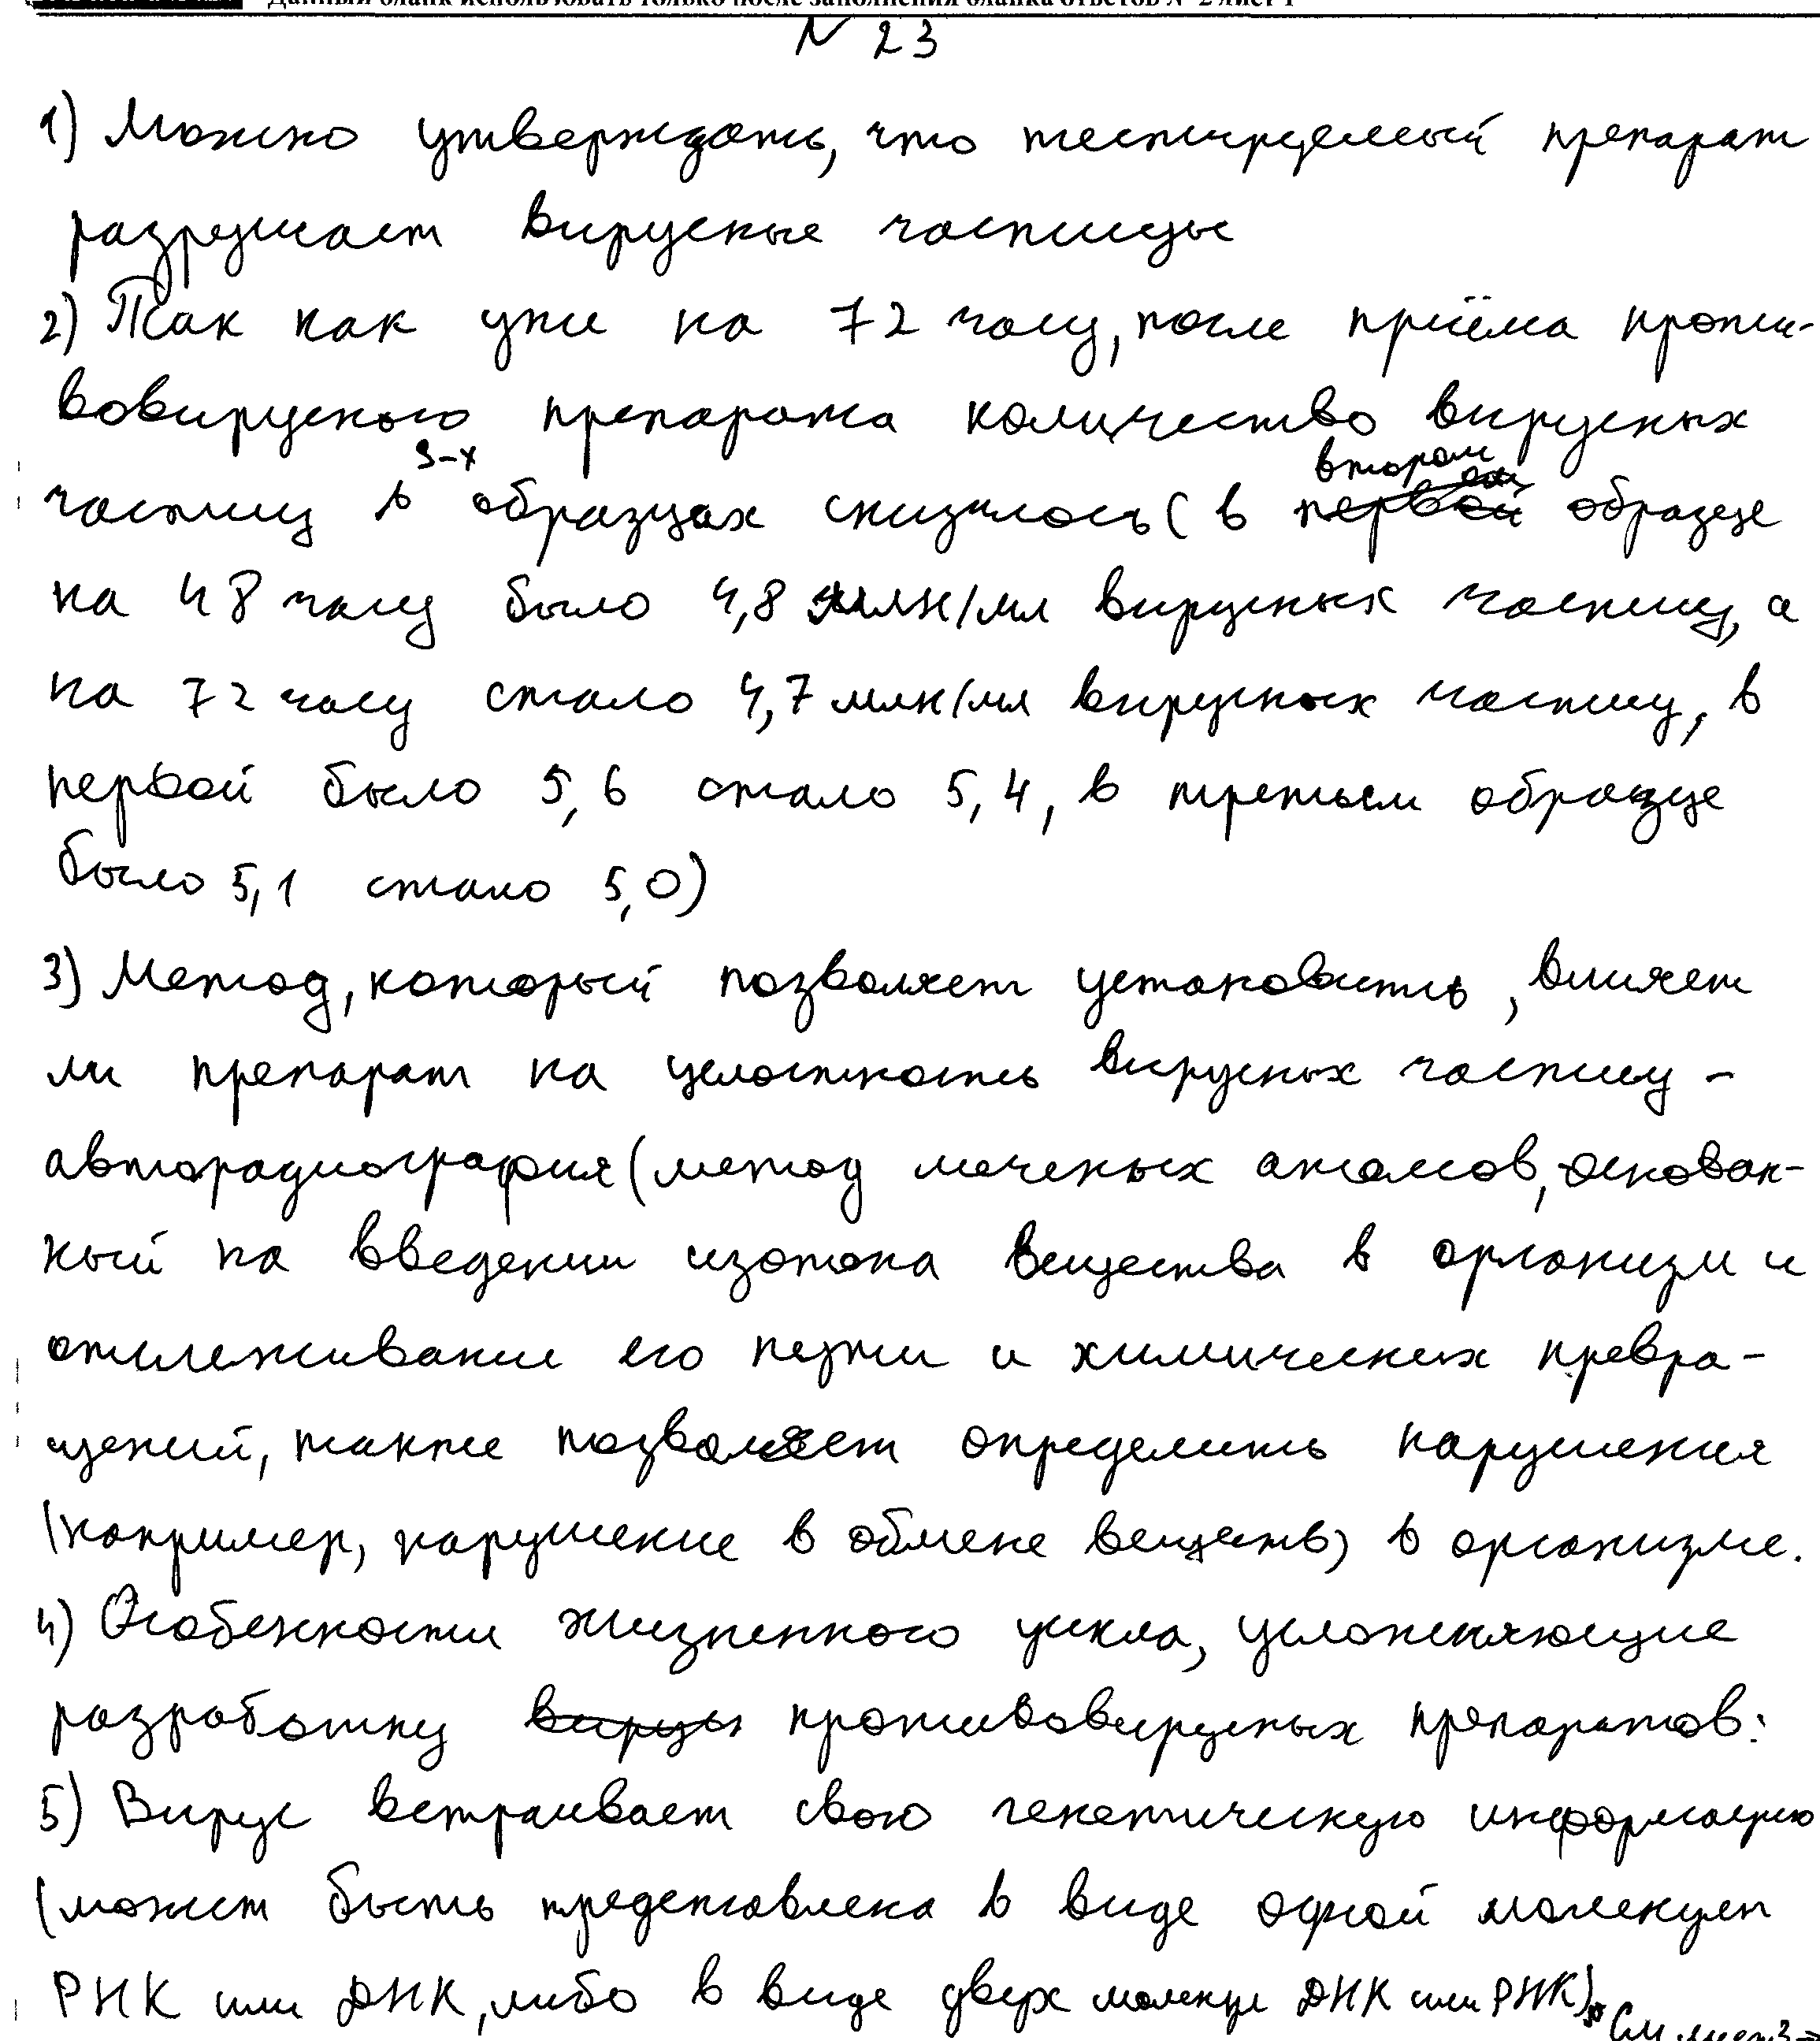 Данный бланк использовать только после заполнения бланка ответов № 2 лист 1
N 23
1) Можно утверждать, что тестируемый препарат
разрушает вирусные частицы
2) Так как уже на 72 часу, после приёма проти-
вовирусного препарата количество вирусных
частиц в 3-х образцах снизилось (в втором образце
на 48 часу было 4,8 млн/мл вирусных частиц, а
на 72 часу стало 4,7 млн/мл вирусных частиц, в
первой было 5,6 стало 5,4, в третьем образце
было 5,1 стало 5,0)
3) Метод, который позволяет установить, влияет
ли препарат на целостность вирусных частиц -
авторадиография (метод меченых атомов, основан-
ный на введении изотопа вещества в организм и
отслеживание его пути и химических превра-
щений, также позволяет определить нарушения
(например, нарушение в обмене веществ) в организме.
4) Особенности жизненного цикла, усложняющие
разработку противовирусных препаратов:
5) Вирус встраивает свою генетическую информацию
(может быть представлена в виде одной молекулы
РНК или ДНК, либо в виде двух молекул ДНК или РНК)
См. лист 3